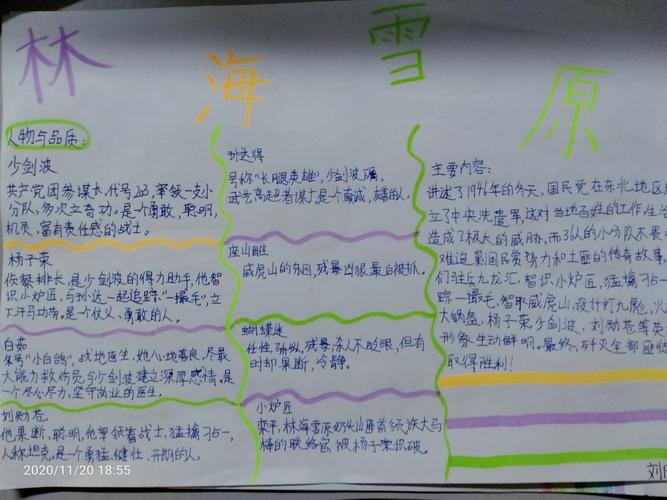 林海雪原
人物与品质:
少剑波
共产党团参谋长,代号203,率领一支小
分队,多次立奇功。是个勇敢,聪明,
机灵,富有责任感的战士。
杨子荣
侦察排长,是少剑波的得力助手,他智
识小炉匠,与孙达一起追踪"一撮毛",立
下汗马功劳,是个仗义、勇敢的人。
白茹
外号"小白鸽",战地医生,她心地善良,尽最
大能力救伤员与少剑波建立深厚感情。是
一个尽心尽力,坚守岗业的医生。
刘勋苍
他果断,聪明,他率领着战士,猛擒刁占一,
人称坦克。是个勇猛,健壮、开朗的人。
孙达得
号称"长腿英雄",少剑波
武艺高超者谋是个真诚,
座山雕
威虎山的东
,残暴凶狠最后被抓。
蝴蝶迷
任性,骄纵,残暴杀人不眨眼,但有
时却果断,冷静。
小炉匠
栾平,林海雪原奶头山匪首领,许大马
棒的联络官,被杨子荣识破。
主要内容:
讲述了1946年的冬天,国民党在东北地区
立了中央先遣军,这对当地百姓的工作生
造成了极大的威胁,而36人的小分队不畏
难追剿国民党势力和土匪的传奇故事。
们驻兵九龙汇,智识小炉匠,猛擒刁占一
踪一撮毛,智取威虎山,设计打九彪,火
大锅盔,杨子荣,少剑波、刘勋苍等英
形象生动鲜明。最终,歼灭全部匪
取得胜利!
2020/11/20 18:55